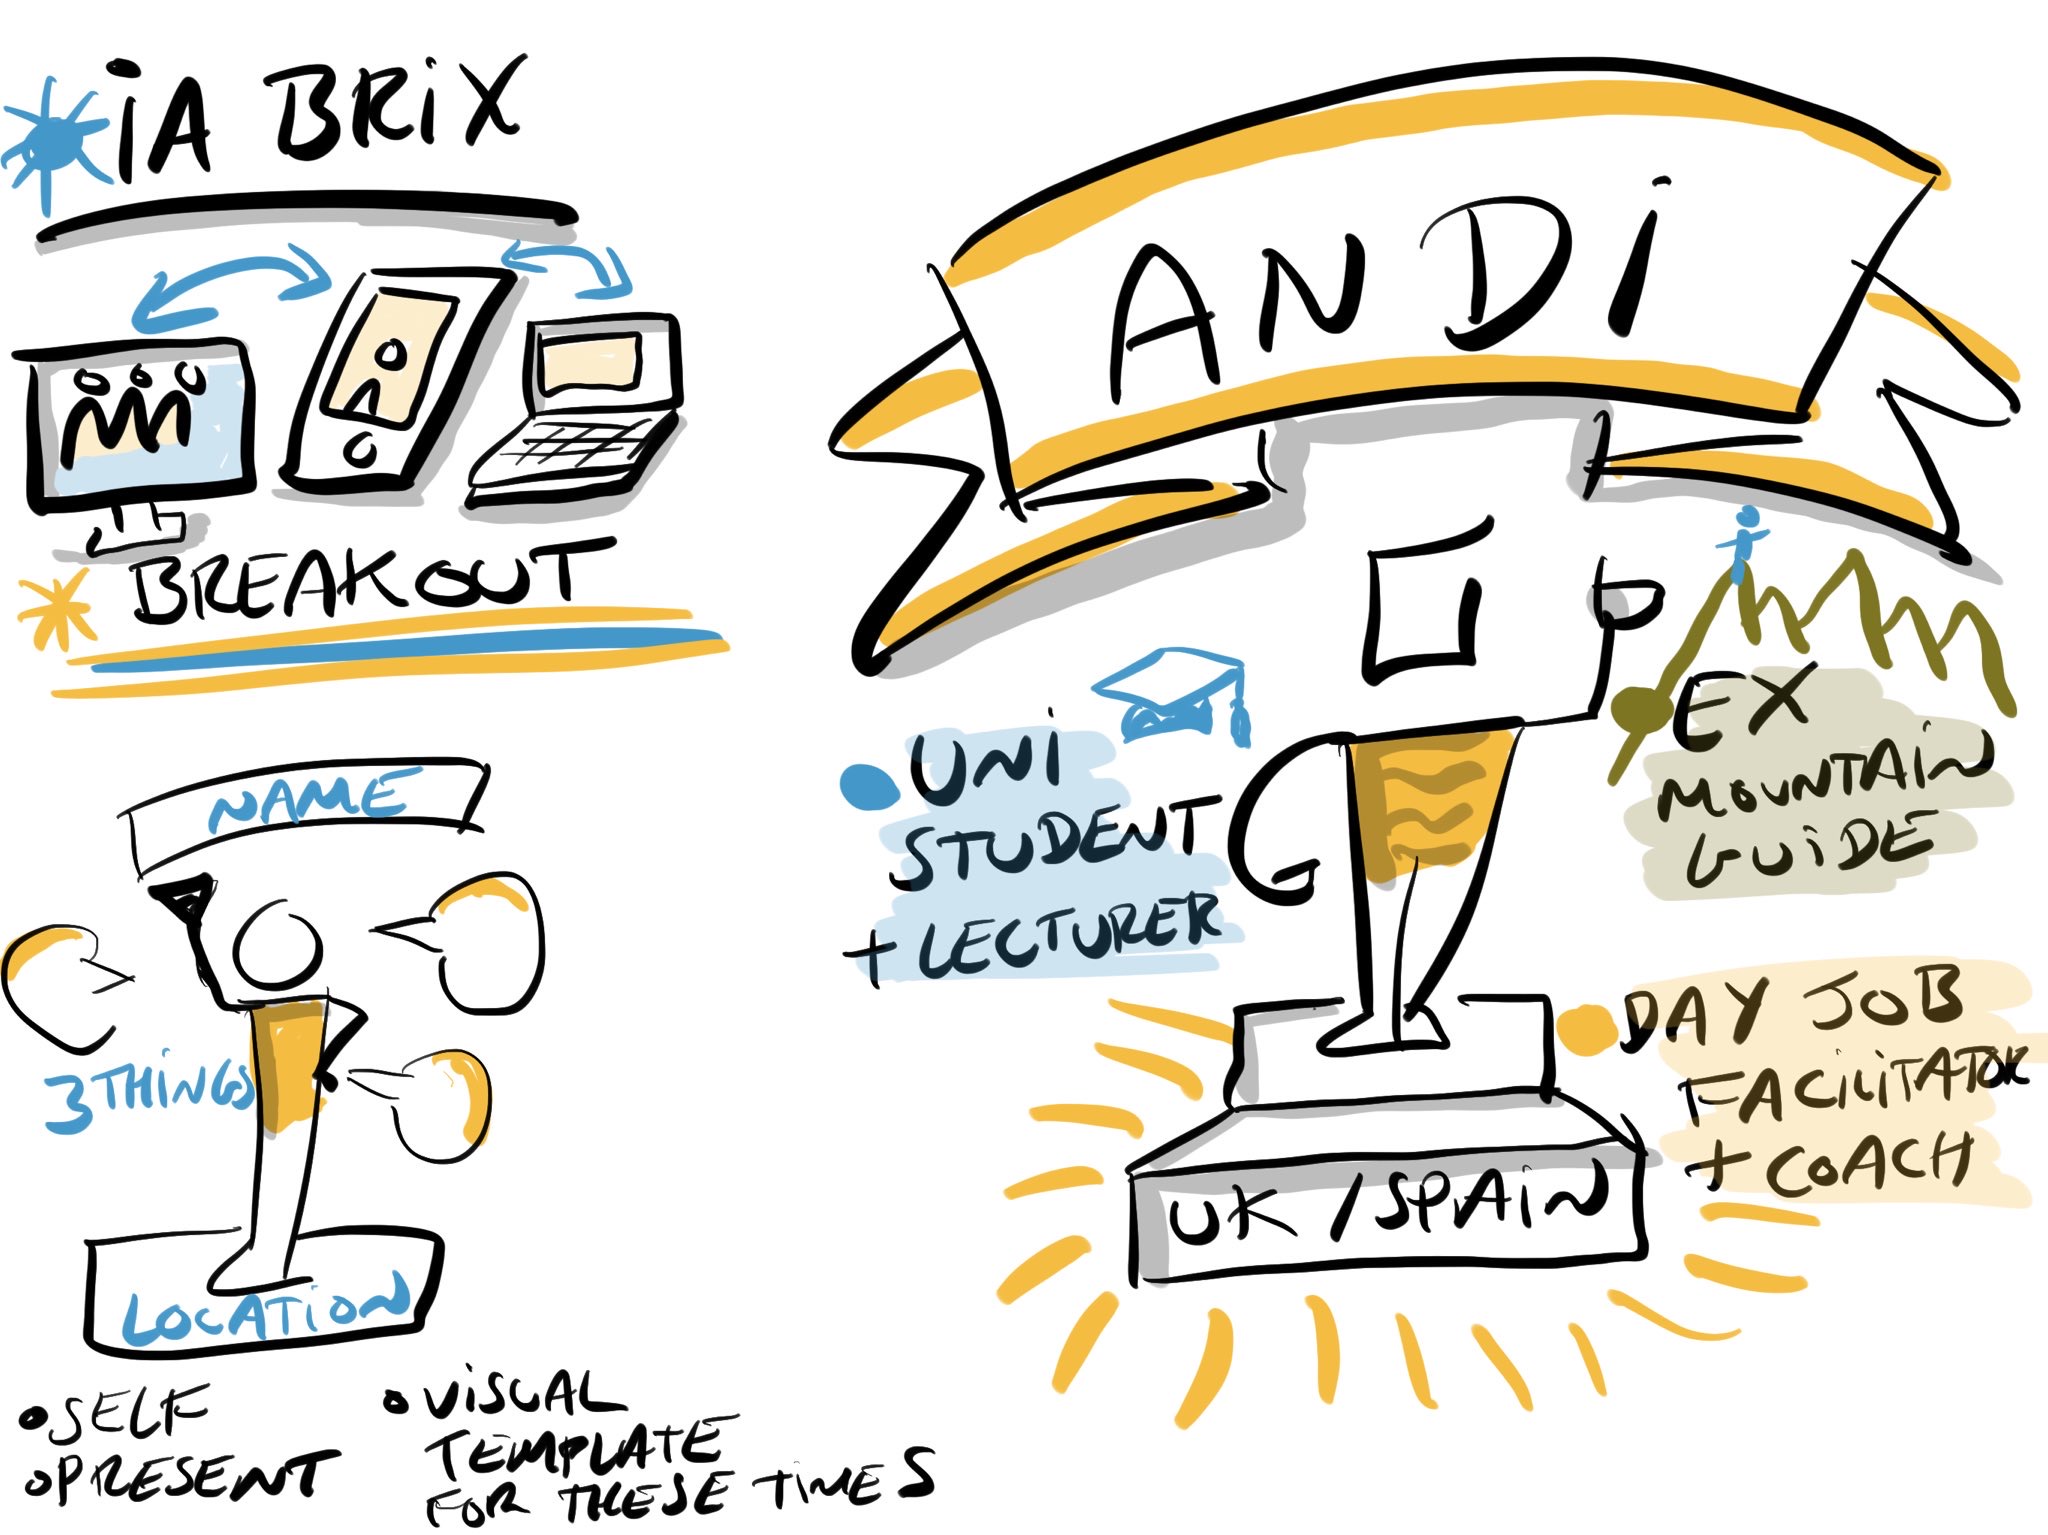 iA BRiX
BREAKOUT
NAME
3 THiNGS
LOCATiON
• SELF
• PRESENT
• ViSUAL
TEMPLATE
FOR THESE TiMES
ANDi
• UNi
STUDENT
+ LECTURER
EX
MOUNTAiN
GUiDE
• DAY JOB
FACiLiTATOR
+ COACH
UK / SPAiN